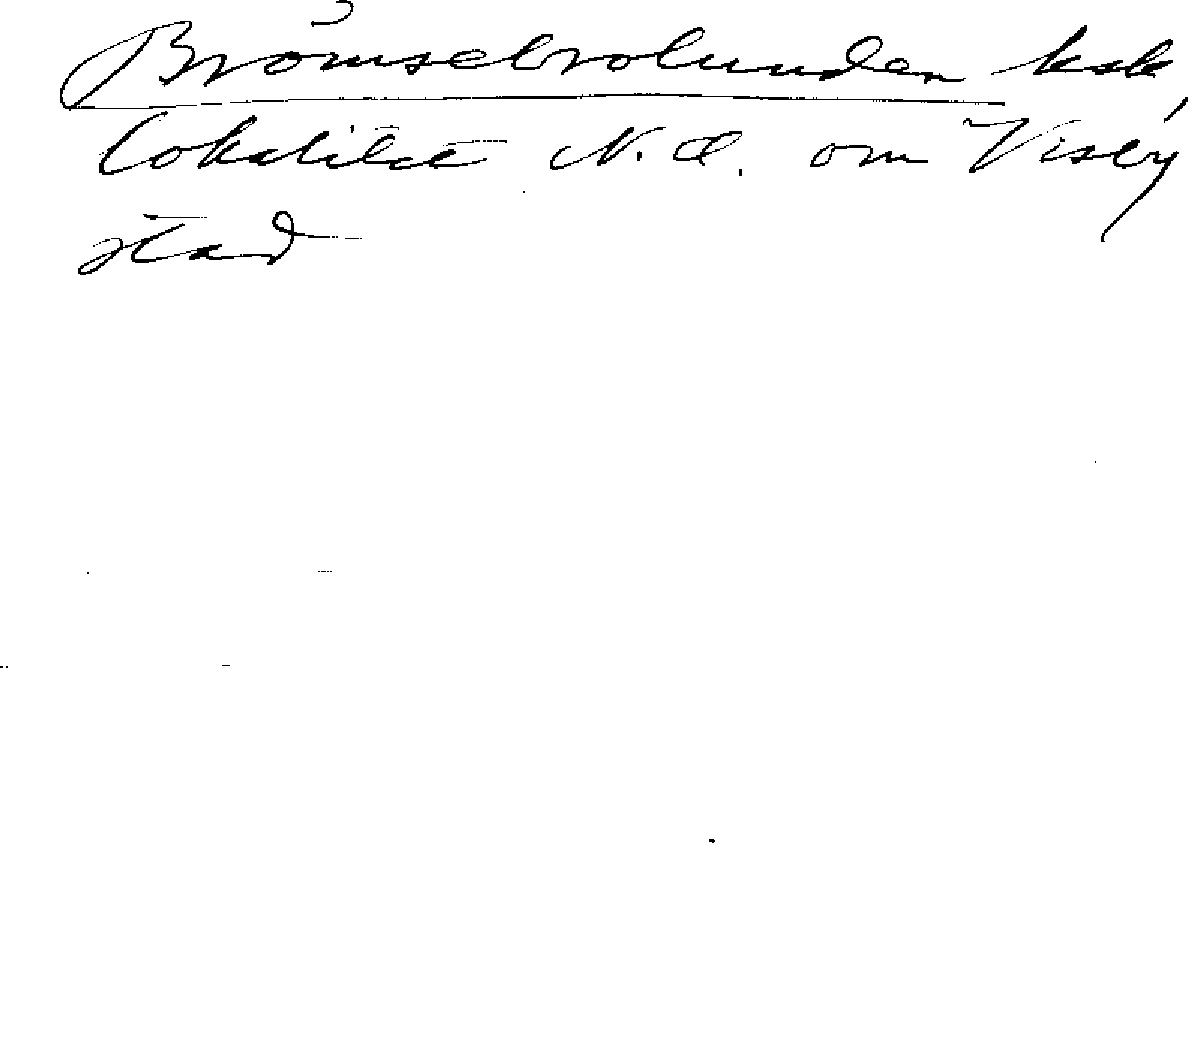 Brömsebrolunden ksk,
lokalitet N.O. om Visby
stad